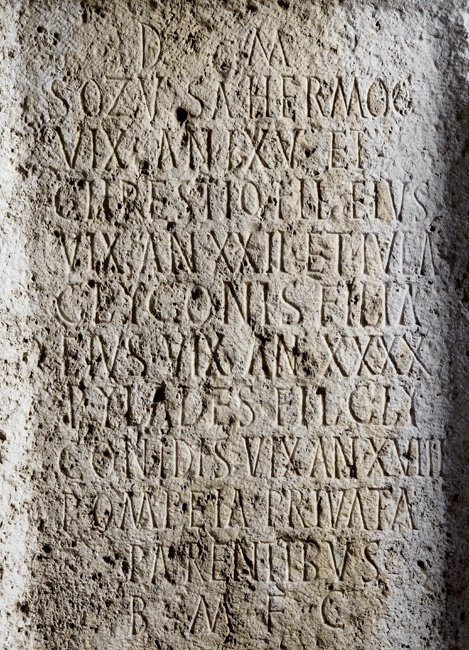 D M
SOZVSA HERMOG
VIX AN LXV ET
CHRESTIO FIL EIVS
VIX AN XXII ET IVLA
GLYCONIS FILIA
EIVS VIX AN XXXX
PYLADES FIL GLY
CONIDIS VIX AN XVIII
POMPEIA PRIVATA
PARENTIBVS
B M F C